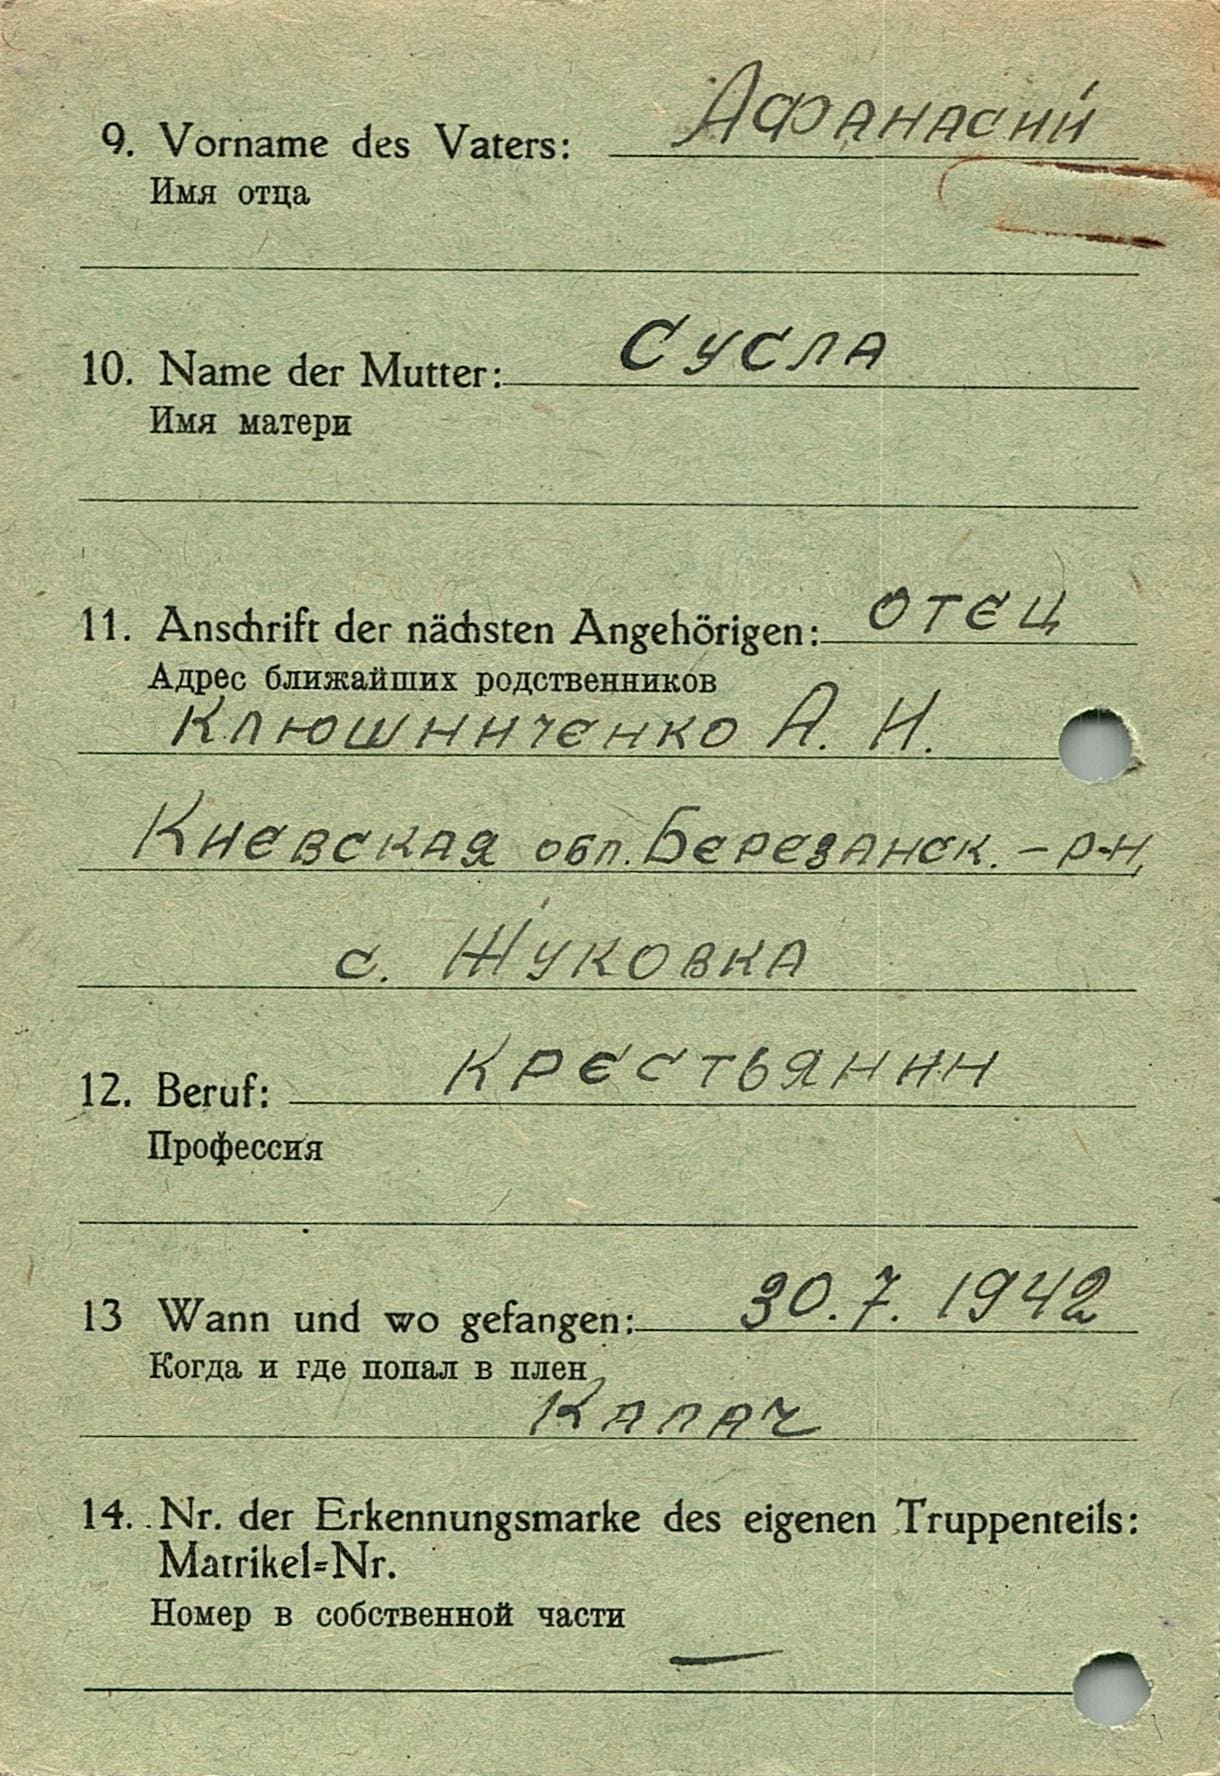 9. Vorname des Vaters: Афанасий
Имя отца
10. Name der Mutter: Сусла
Имя матери
11. Anschrift der nächsten Angehörigen: отец
Адрес ближайших родственников
Клюшниченко А. И.
Киевская обл. Березанск. - р-н,
с. Жуковка
12. Beruf: крестьянин
Профессия
13 Wann und wo gefangen: 30.7.1942
Когда и где попал в плен
Калач
14. Nr. der Erkennungsmarke des eigenen Truppenteils:
Matrikel=Nr.
Номер в собственной части
—